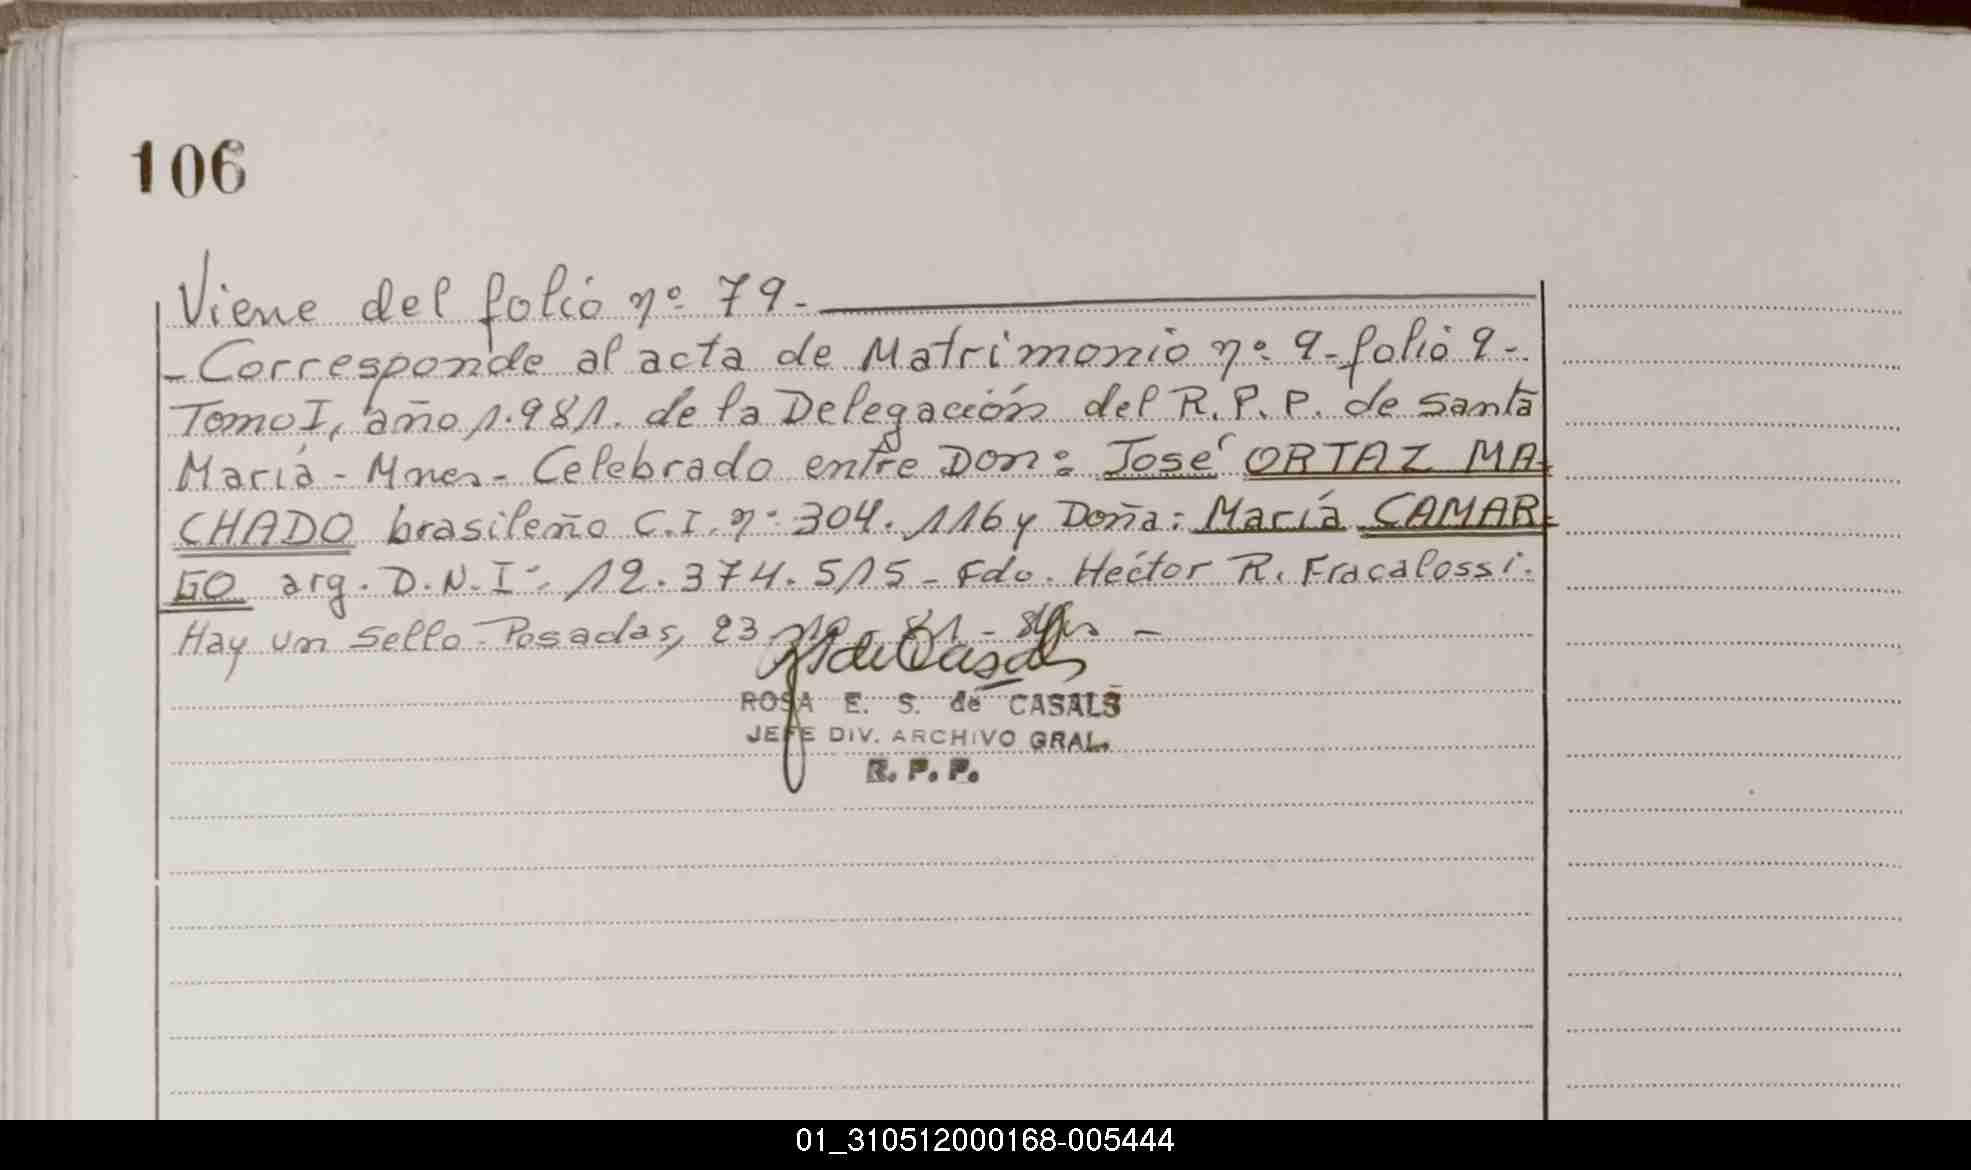 106
Viene del folio nº 79-
- Corresponde al acta de Matrimonio nº 9- folio 9-
Tomo I, año 1.981. de la Delegación del R.P.P. de Santa
María - Mnes- Celebrado entre Don: José ORTAZ MA-
CHADO brasileño C.I. nº 304.116 y Doña: María CAMAR-
GO arg. D.N.I: 12.374.515- Fdo. Héctor R. Fracalossi.
Hay un sello- Posadas, 23-10-81-
ROSA E. S. de CASALS
JEFE DIV. ARCHIVO GRAL.
R. P. P.
01_310512000168-005444